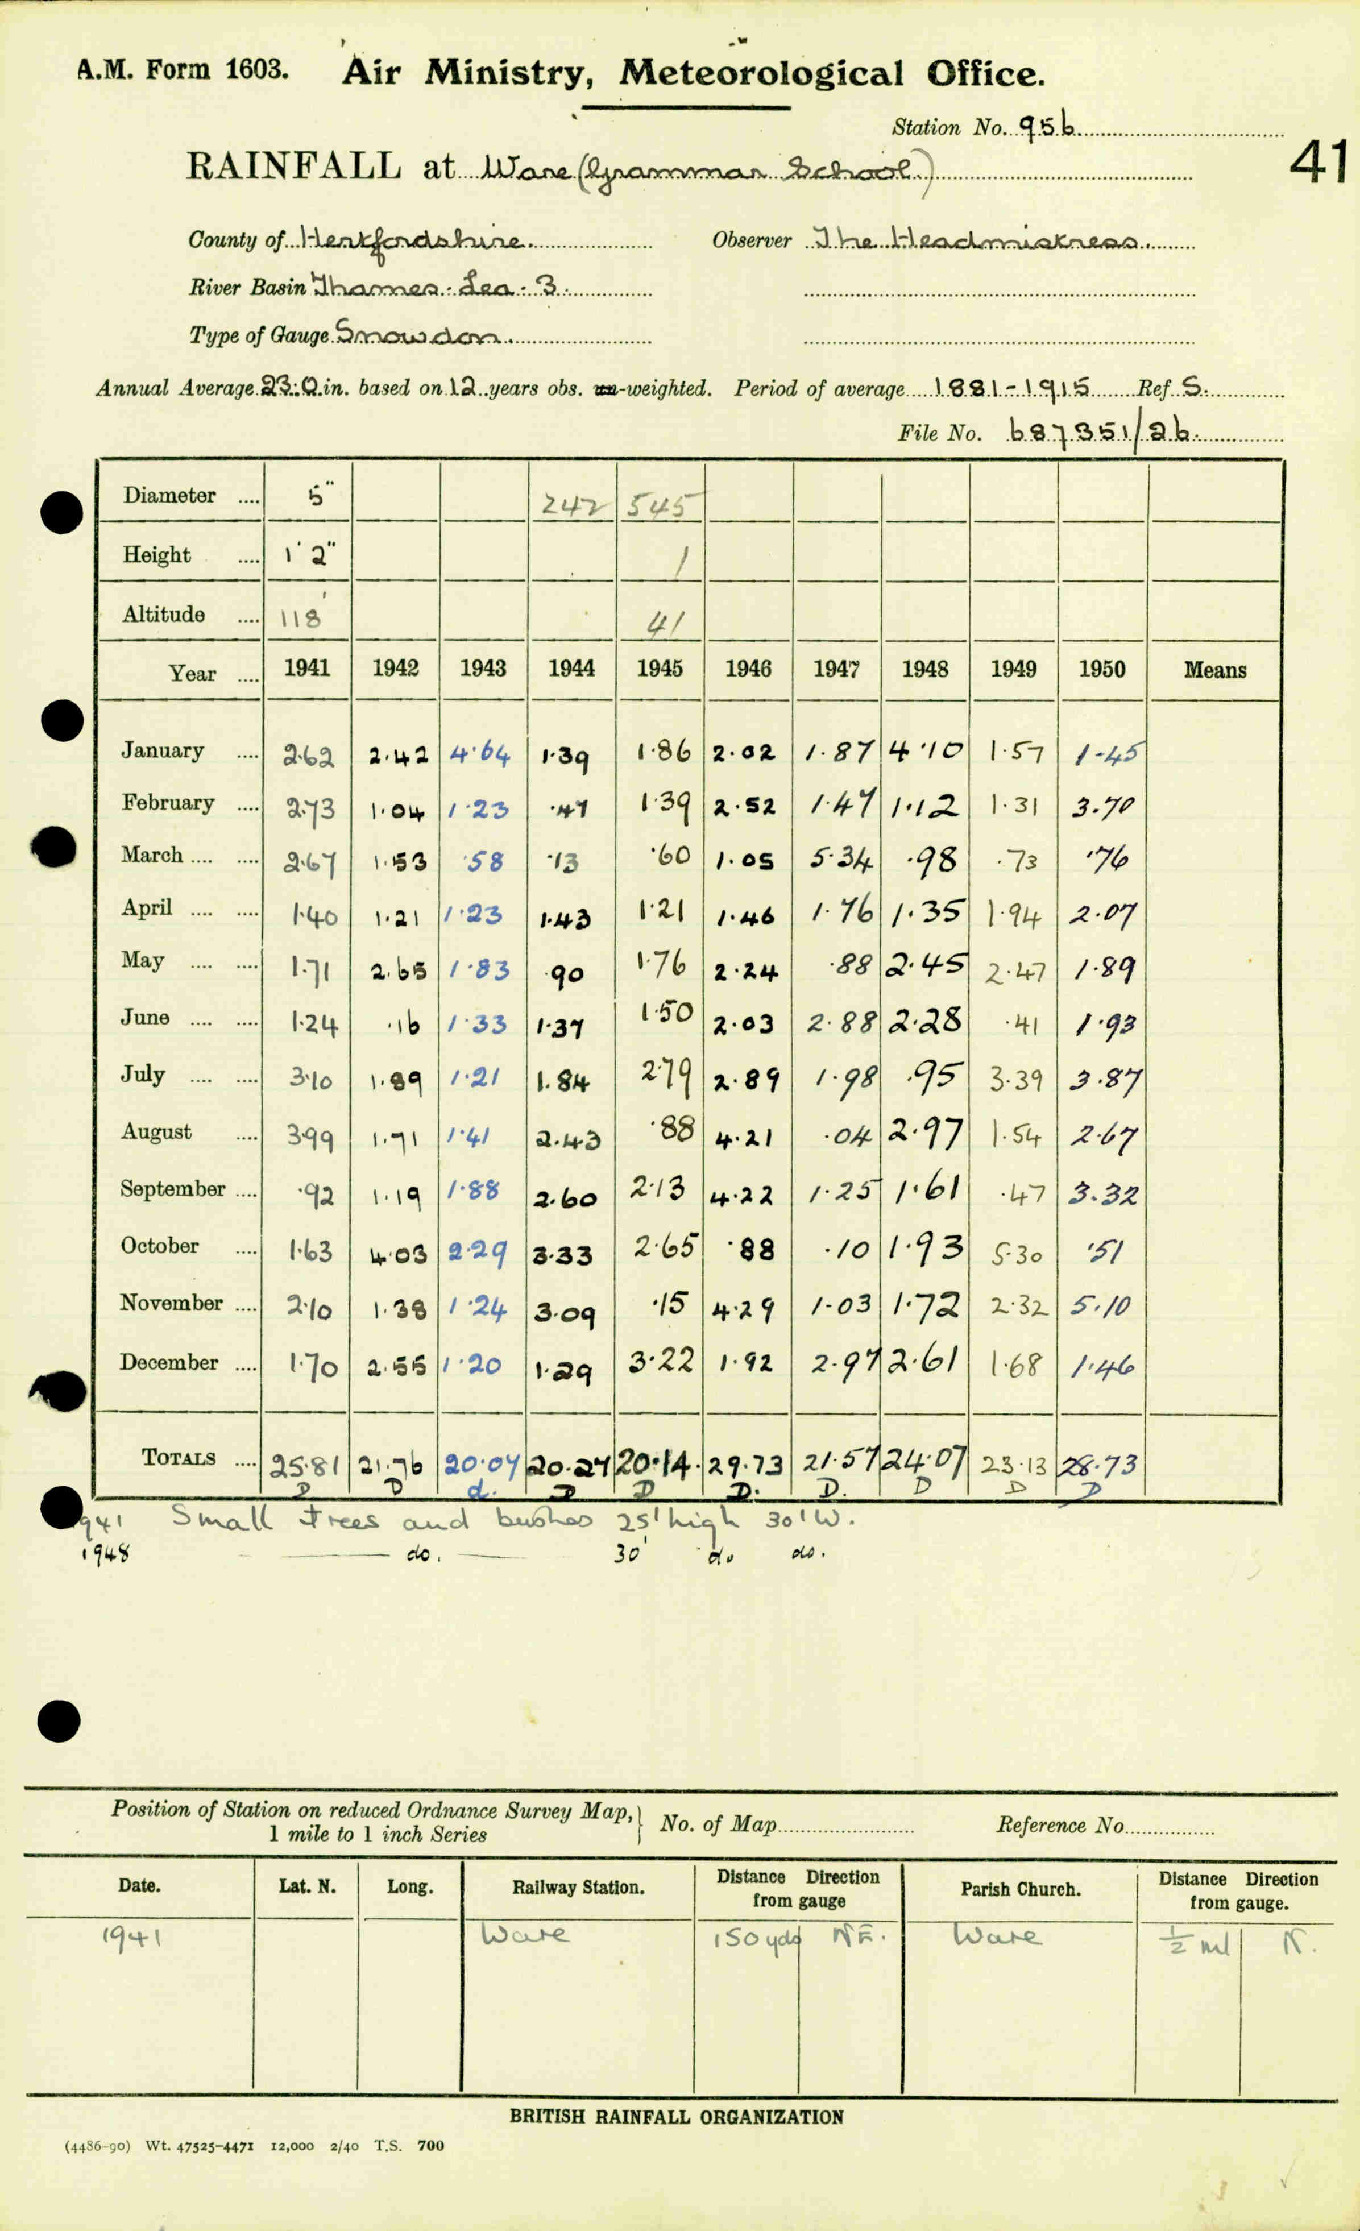 A.M. Form 1603. Air Ministry, Meteorological Office.
Station No. 956
41
RAINFALL at Ware (Grammar School)
County of Hertfordshire. Observer The Headmistress.
River Basin Thames - Lea - 3.
Type of Gauge Snowdon.
Annual Average 23.0 in. based on 12 years obs. un-weighted. Period of average 1881-1915 Ref S.
File No. 687351/26.
Diameter .... 5" 242 545
Height .... 1' 2" 1
Altitude .... 118' 41
Year .... 1941 1942 1943 1944 1945 1946 1947 1948 1949 1950 Means
January .... 2.62 2.42 4.64 1.39 1.86 2.02 1.87 4.10 1.57 1.45
February .... 2.73 1.04 1.23 .47 1.39 2.52 1.47 1.12 1.31 3.70
March .... .... 2.67 1.53 .58 .13 .60 1.05 5.34 .98 .73 .76
April .... .... 1.40 1.21 1.23 1.43 1.21 1.46 1.76 1.35 1.94 2.07
May .... .... 1.71 2.65 1.83 .90 1.76 2.24 .88 2.45 2.47 1.89
June .... .... 1.24 .16 1.33 1.37 1.50 2.03 2.88 2.28 .41 1.93
July .... .... 3.10 1.89 1.21 1.84 2.79 2.89 1.98 .95 3.39 3.87
August .... 3.99 1.71 1.41 2.43 .88 4.21 .04 2.97 1.54 2.67
September .... .92 1.19 1.88 2.60 2.13 4.22 1.25 1.61 .47 3.32
October .... 1.63 4.03 2.29 3.33 2.65 .88 .10 1.93 5.30 .51
November .... 2.10 1.38 1.24 3.09 .15 4.29 1.03 1.72 2.32 5.10
December .... 1.70 2.55 1.20 1.29 3.22 1.92 2.97 2.61 1.68 1.46
TOTALS .... 25.81 21.76 20.07 20.27 20.14. 29.73 21.57 24.07 23.13 28.73
D D d. D D D. D. D D D
1941 Small trees and bushes 25' high 30' W.
1948 do. 30' do. do.
Position of Station on reduced Ordnance Survey Map,
1 mile to 1 inch Series
No. of Map
Reference No.
Date. Lat. N. Long. Railway Station. Distance Direction from gauge Parish Church. Distance Direction from gauge.
1941 Ware 150 yds NE. Ware ½ ml N.
BRITISH RAINFALL ORGANIZATION
(4486-90) Wt. 47525-4471 12,000 2/40 T.S. 700